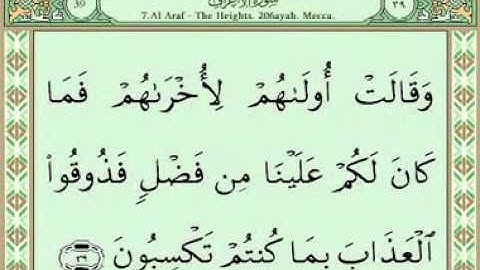 30 سورة الأعراف ٣٩
7.Al Araf - The Heights. 206ayah. Mecca.
وَقَالَتْ أُولَىٰهُمْ لِأُخْرَىٰهُمْ فَمَا
كَانَ لَكُمْ عَلَيْنَا مِن فَضْلٍ فَذُوقُوا۟
ٱلْعَذَابَ بِمَا كُنتُمْ تَكْسِبُونَ ٣٩